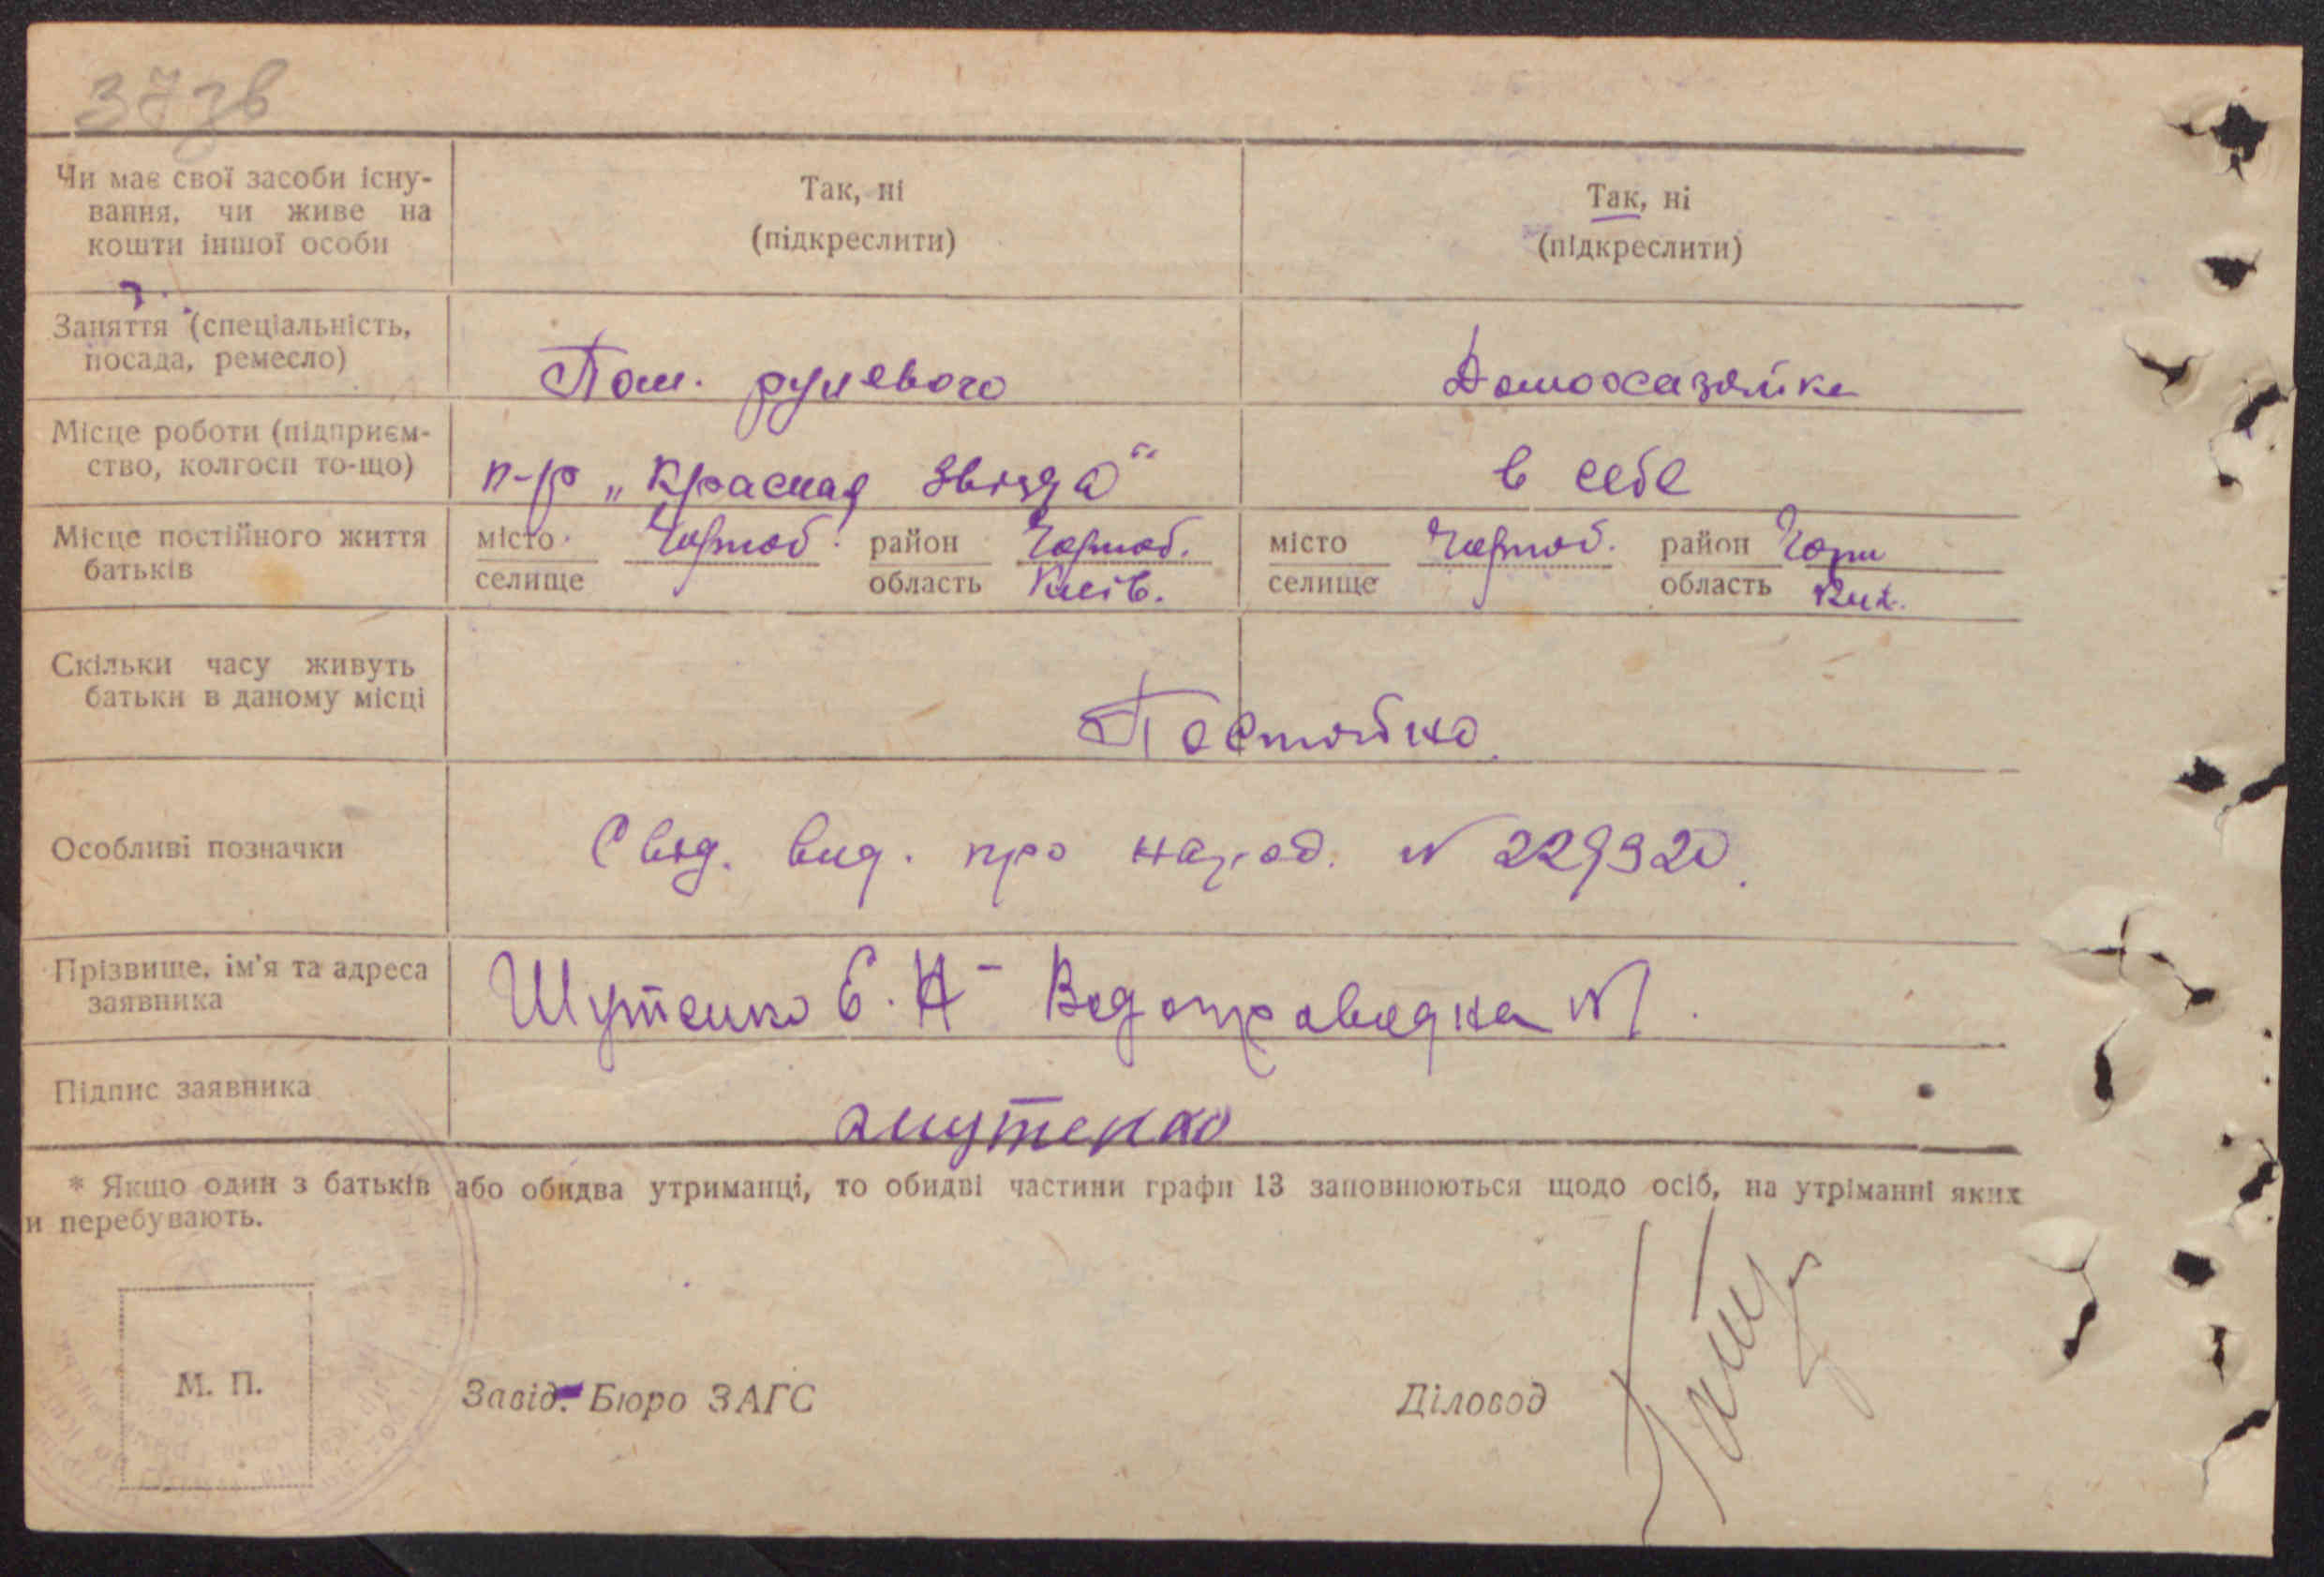 37зв
Чи має свої засоби існу-
вання, чи живе на
кошти іншої особи
Так, ні
(підкреслити)
Так, ні
(підкреслити)
Заняття (спеціальність,
посада, ремесло)
Пом. рулевого
Домохазяйка
Місце роботи (підприєм-
ство, колгосп то-що)
п-р „Красная Звізда"
в себе
Місце постійного життя
батьків
місто Чорноб. район Чорноб.
селище область Київ.
місто Чорноб. район Чорн
селище область Киї.
Скільки часу живуть
батьки в даному місці
Постойно
Особливі позначки
Свід. вид. про народ. № 229320.
Прізвище, ім'я та адреса
заявника
Шутенко Є. Н - №1.
Підпис заявника
Шутенко
* Якщо один з батьків або обидва утриманці, то обидві частини графи 13 заповнюються щодо осіб, на утріманні яких
и перебувають.
М. П.
Завід. Бюро ЗАГС
Діловод